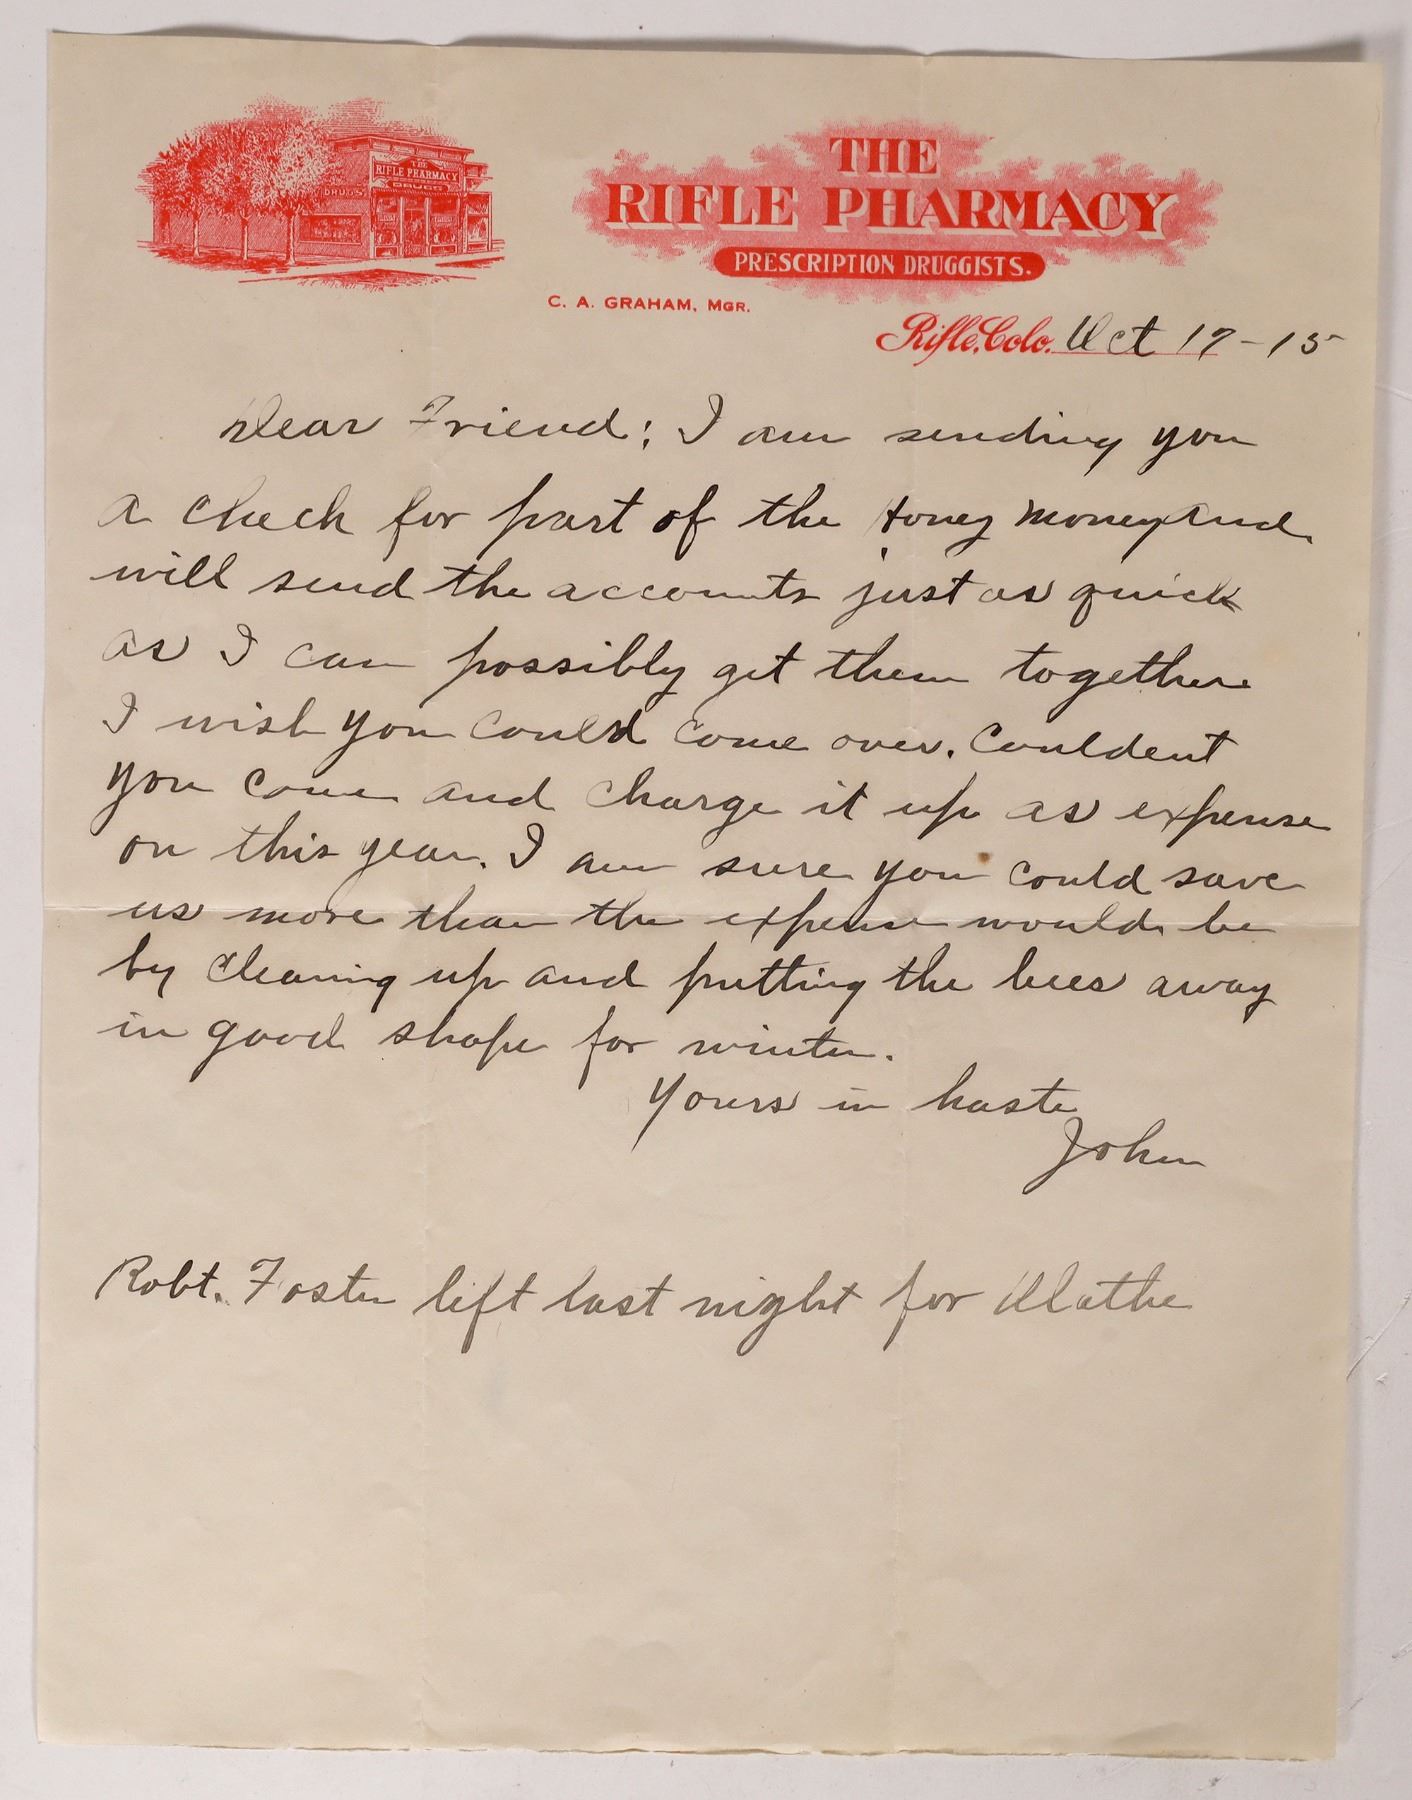 THE
RIFLE PHARMACY
DRUGS
DRUGS
THE
RIFLE PHARMACY
PRESCRIPTION DRUGGISTS.
C. A. GRAHAM, MGR.
Rifle, Colo. Oct 17-15
Dear Friend; I am sending you
a check for part of the Honey money and
will send the accounts just as quick
as I can possibly get them together
I wish you could come over. Couldent
you come and charge it up as expense
on this year. I am sure you could save
us more than the expense would be
by cleaning up and putting the bees away
in good shape for winter.
Yours in haste
John
Robt. Foster left last night for Olathe